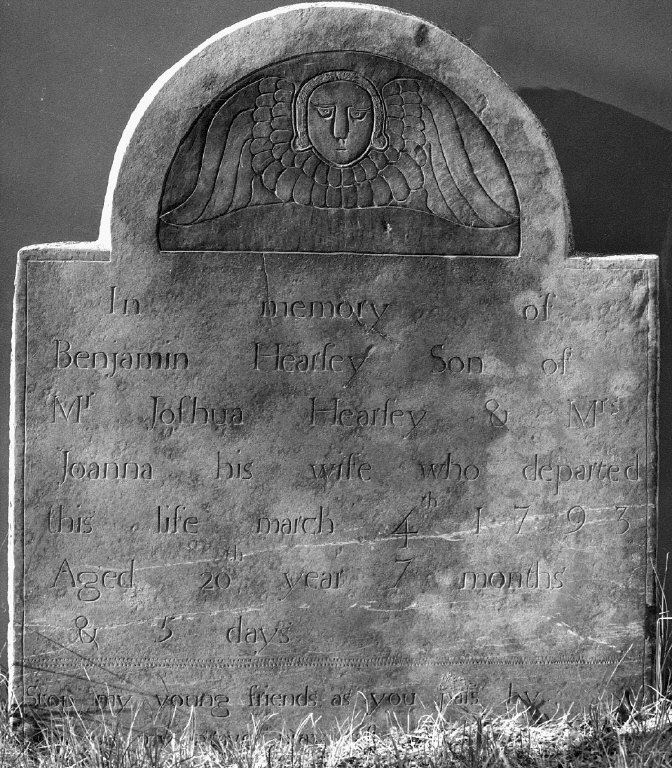 In memory of
Benjamin Hearſey Son of
Mr Joſhua Hearſey & Mrs
Joanna his wife who departed
this life march 4th 1793
Aged 20th year 7 months
& 5 days
Stop my young friends as you paſs by
my